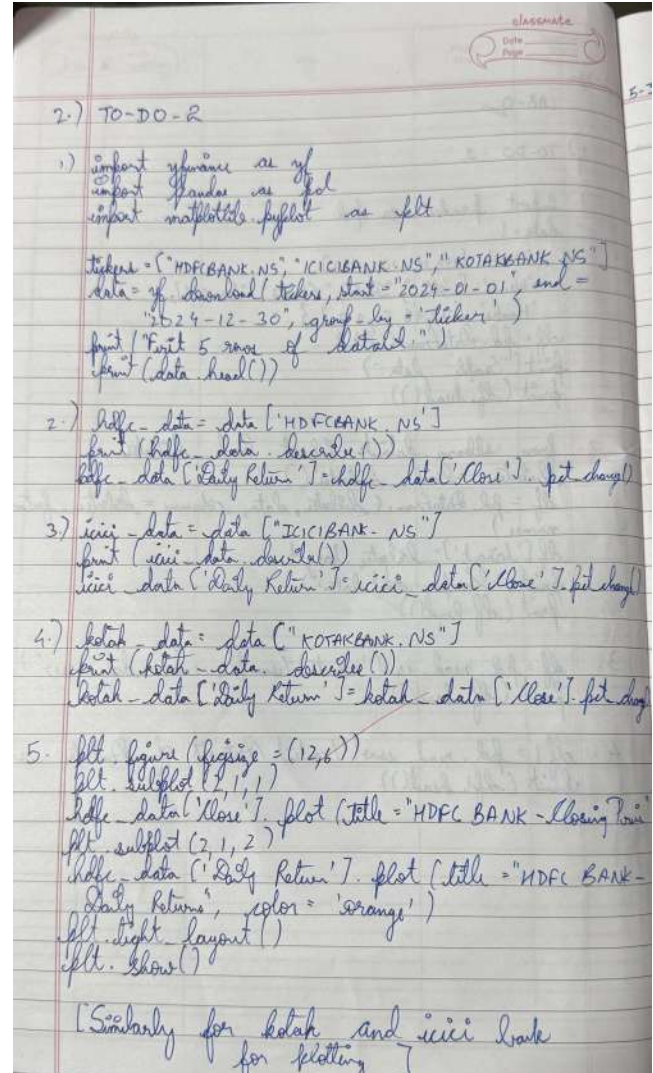 classmate
Date
Page
5-3
2.) TO-DO-2
1.) import yfinance as yf
import pandas as pd
import matplotlib.pyplot as plt
tickers = ["HDFCBANK.NS", "ICICIBANK.NS", "KOTAKBANK.NS"]
data = yf.download(tickers, start="2024-01-01", end=
"2024-12-30", group_by='ticker')
print("First 5 rows of dataset")
print(data.head())
2.) hdfc_data = data['HDFCBANK.NS']
print(hdfc_data.describe())
hdfc_data['Daily Return'] = hdfc_data['Close'].pct_change()
3.) icici_data = data["ICICIBANK.NS"]
print(icici_data.describe())
icici_data['Daily Return'] = icici_data['Close'].pct_change()
4.) kotak_data = data["KOTAKBANK.NS"]
print(kotak_data.describe())
kotak_data['Daily Return'] = kotak_data['Close'].pct_chang
5. plt.figure(figsize=(12,6))
plt.subplot(2,1,1)
hdfc_data['Close'].plot(title="HDFC BANK - Closing Price"
plt.subplot(2,1,2)
hdfc_data['Daily Return'].plot(title="HDFC BANK -
Daily Returns", color='orange')
plt.tight_layout()
plt.show()
[Similarly for kotak and icici bank
for plotting]